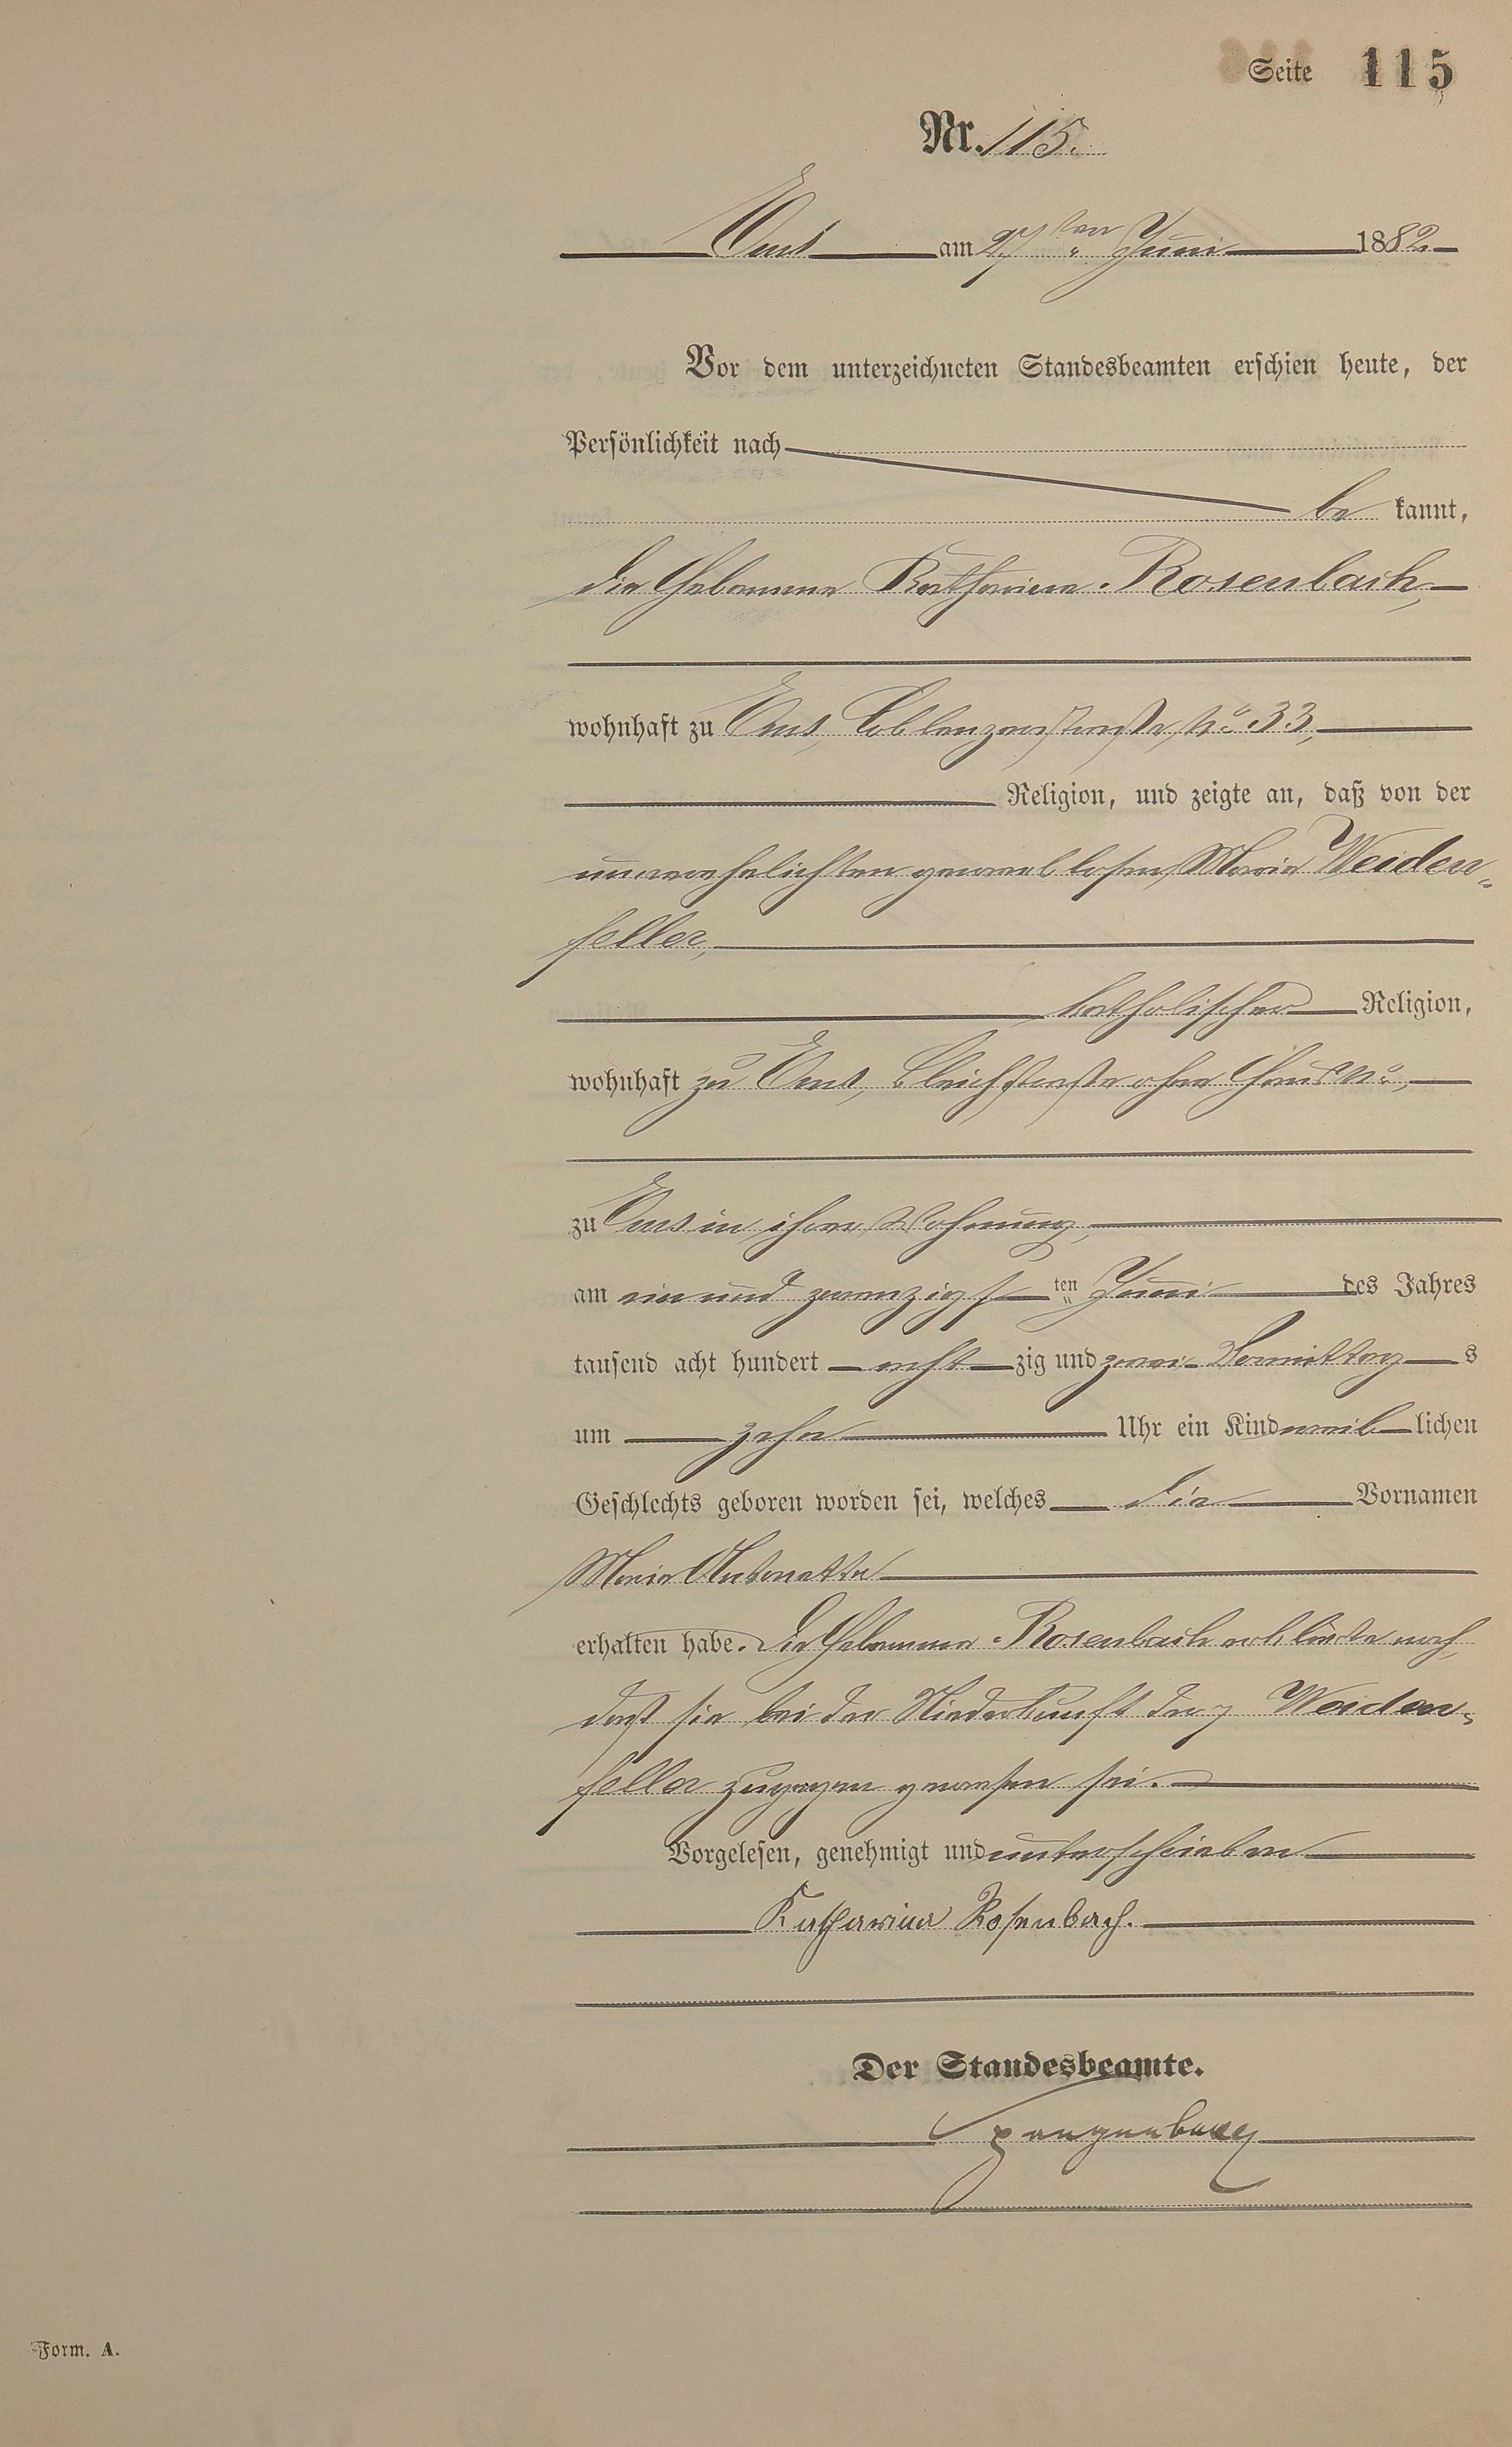 Seite 115
Nr. 115.
Ems am 27ten Juni 1882
Vor dem unterzeichneten Standesbeamten erschien heute, der
Persönlichkeit nach
be kannt,
die Hebamme Katharina Rosenbach,
wohnhaft zu Ems, Coblenzerstraße, No. 33,
Religion, und zeigte an, daß von der
unverehelichten gewerblosen Maria Weiden-
feller,
katholischer Religion,
wohnhaft zu Ems, Bleichstraße ohne Haus No.,
zu Ems in ihrer Wohnung,
am ein und zwanzigsten Juni des Jahres
tausend acht hundert acht zig und zwei Vormittag s
um zehn Uhr ein Kind weib lichen
Geschlechts geboren worden sei, welches die Vornamen
Maria Antonetta
erhalten habe. Die Hebamme Rosenbach erklärte noch,
daß sie bei der Niederkunft der Weiden-
feller zugegen gewesen sei.
Vorgelesen, genehmigt und unterschrieben
Katharina Rosenbach.
Der Standesbeamte.
Spangenberg
Form. A.